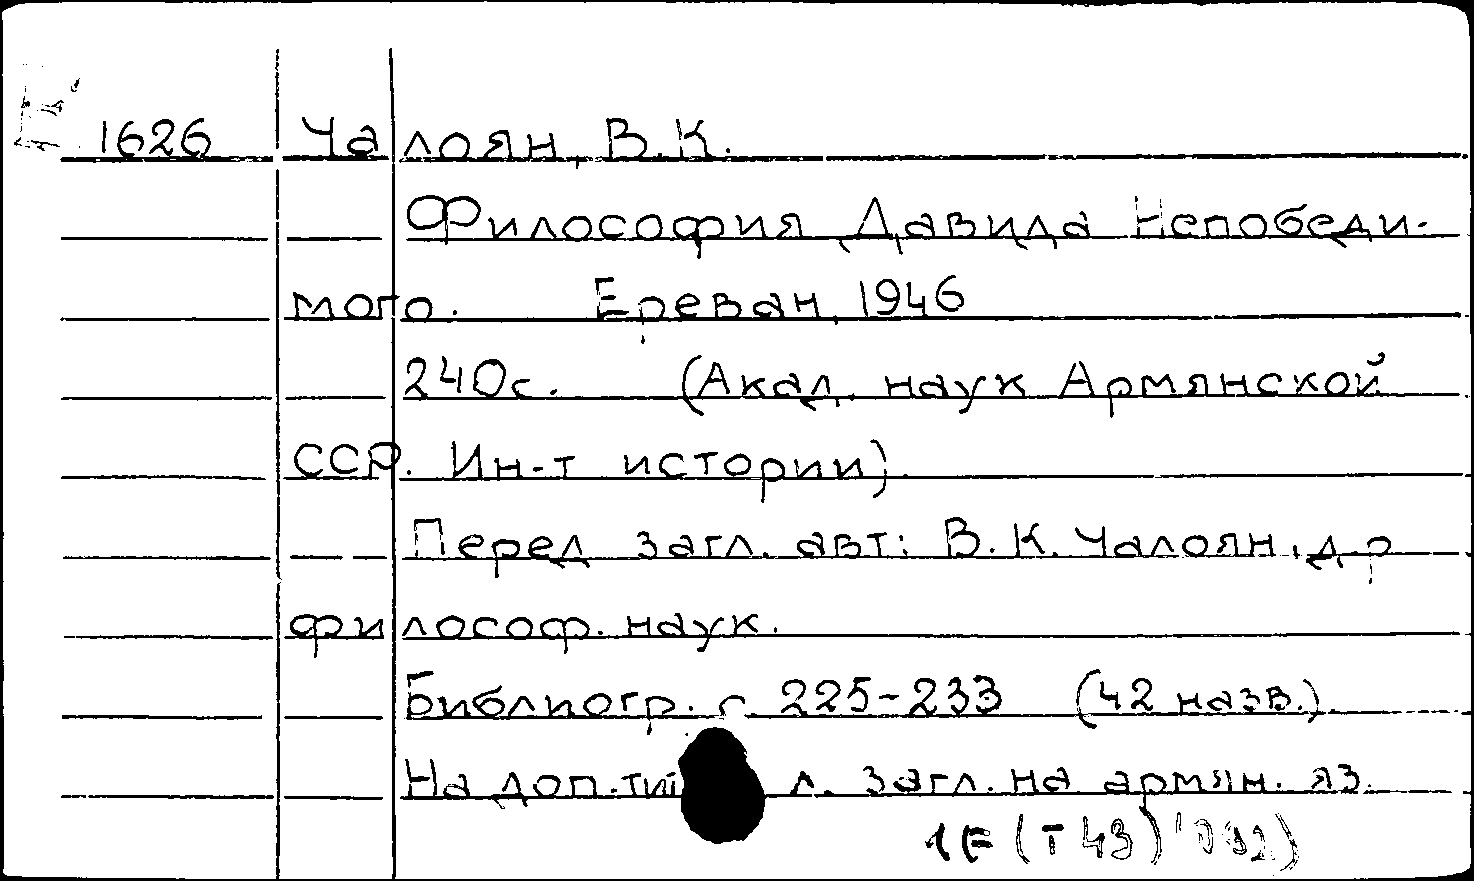 1626 Чалоян, В.К.
Философия Давида Непобеди-
мого. Ереван, 1946
240с. (Акад. наук Армянской
ССР. Ин-т истории)
Перед загл. авт: В.К. Чалоян, д-р
философ. наук.
Библиогр. с 225-233 (42 назв.).
На доп. л. загл. на армян. яз.